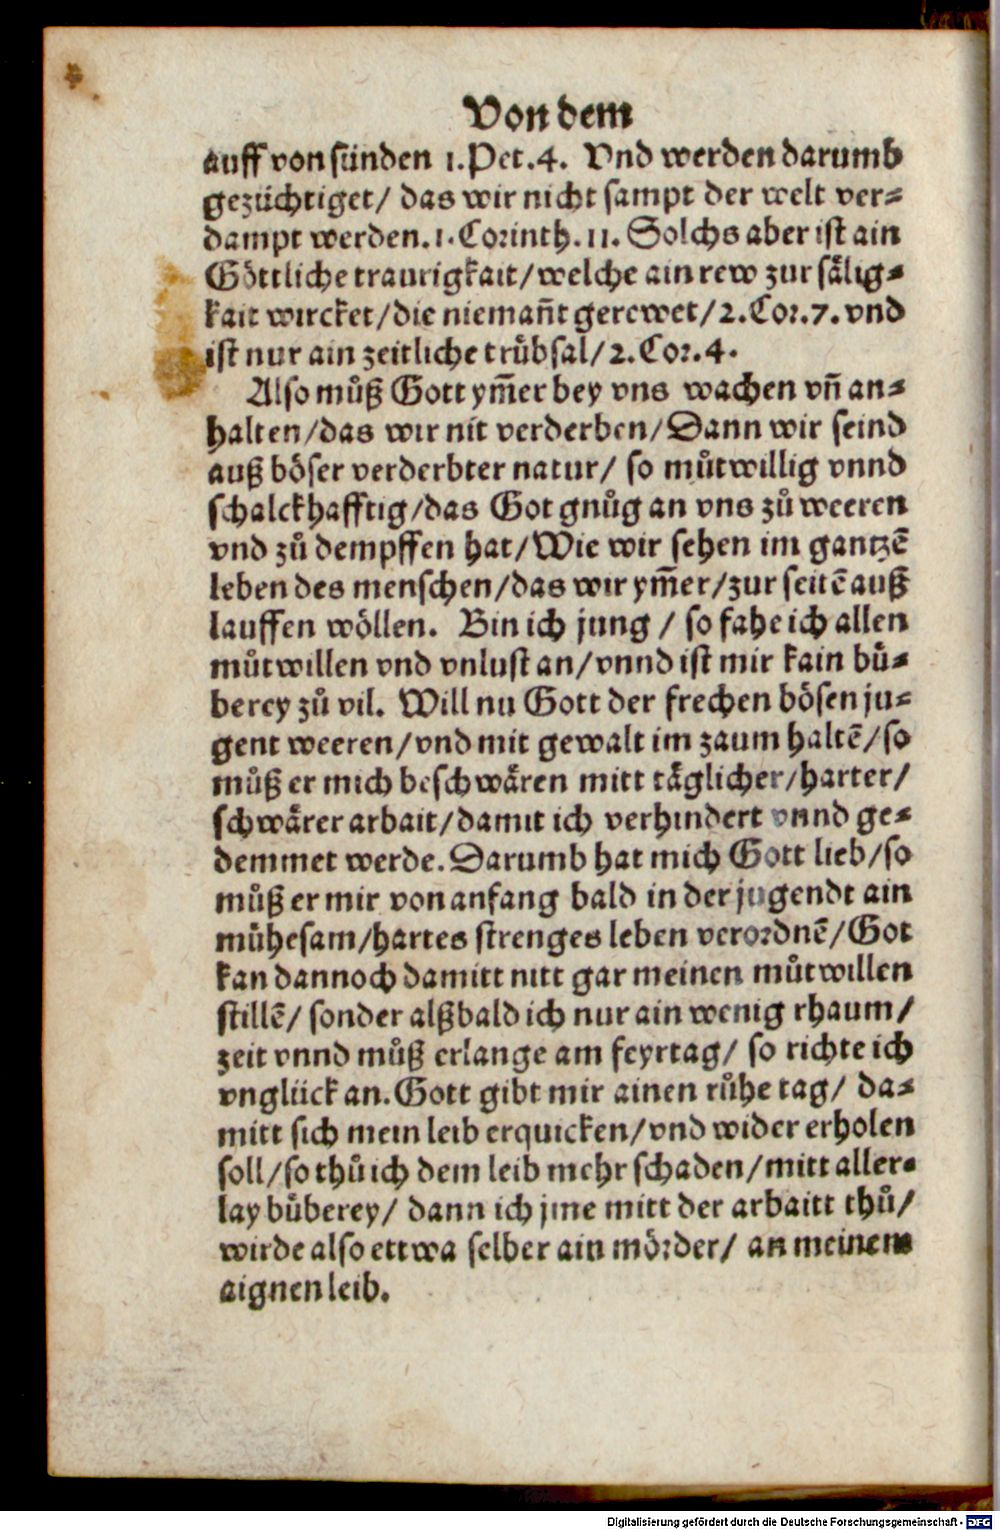 Von dem
auff von sünden 1.Pet.4. Vnd werden darumb
gezüchtiget/ das wir nicht sampt der welt ver⸗
dampt werden.1.Corinth.11. Solchs aber ist ain
Göttliche traurigkait/welche ain rew zur sälig⸗
kait wircket/die niemañt gerewet/2.Cor.7.vnd
ist nur ain zeitliche trübsal/2.Cor.4.
Also můß Gott ym̃er bey vns wachen vñ an⸗
halten/das wir nit verderben/Dann wir seind
auß böser verderbter natur/ so můtwillig vnnd
schalckhafftig/das Got gnůg an vns zů weeren
vnd zů dempffen hat/Wie wir sehen im gantzẽ
leben des menschen/das wir ym̃er/zur seitẽ auß
lauffen wöllen. Bin ich jung / so fahe ich allen
můtwillen vnd vnlust an/vnnd ist mir kain bů⸗
berey zů vil. Will nu Gott der frechen bösen ju⸗
gent weeren/vnd mit gewalt im zaum haltẽ/so
můß er mich beschwären mitt täglicher/harter/
schwärer arbait/damit ich verhindert vnnd ge⸗
demmet werde.Darumb hat mich Gott lieb/so
můß er mir von anfang bald in der jugendt ain
mühesam/hartes strenges leben verordnẽ/Got
kan dannoch damitt nitt gar meinen můtwillen
stillẽ/ sonder alßbald ich nur ain wenig rhaum/
zeit vnnd můß erlange am feyrtag/ so richte ich
vnglück an.Gott gibt mir ainen růhe tag/ da⸗
mitt sich mein leib erquicken/vnd wider erholen
soll/so thů ich dem leib mehr schaden/mitt aller⸗
lay bůberey/ dann ich jme mitt der arbaitt thů/
wirde also ettwa selber ain mörder/ an meinem
aignen leib.
Digitalisierung gefördert durch die Deutsche Forschungsgemeinschaft - DFG